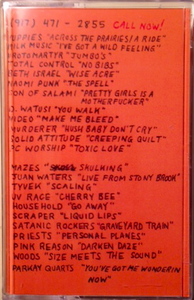 (917) 471 - 2855 CALL NOW!
UPPIES "ACROSS THE PRAIRIES/A RIDE"
MILK MUSIC "I'VE GOT A WILD FEELING"
PROTOMARTYR "JUMBO'S"
TOTAL CONTROL "NO BIBS"
BETH ISRAEL "WISE ACRE"
NAOMI PUNK "THE SPELL"
ON OF SALAMI "PRETTY GIRLS IS A
MOTHERFUCKER"
J. WATUSI "YOU WALK"
VIDEO "MAKE ME BLEED"
MURDERER "HUSH BABY DON'T CRY"
OLID ATTITUDE "CREEPING QUILT"
C WORSHIP "TOXIC LOVE"
MAZES SKULKING"
JUAN WATERS "LIVE FROM STONY BROOK"
TYVEK "SCALING"
UV RACE "CHERRY BEE"
HOUSEHOLD "GO AWAY"
SCRAPER "LIQUID LIPS"
SATANIC ROCKERS "GRAVEYARD TRAIN"
PRIESTS "PERSONAL PLANES"
PINK REASON "DARKEN DAZE"
WOODS "SIZE MEETS THE SOUND"
PARKAY QUARTS "YOU'VE GOT ME WONDERIN
NOW"